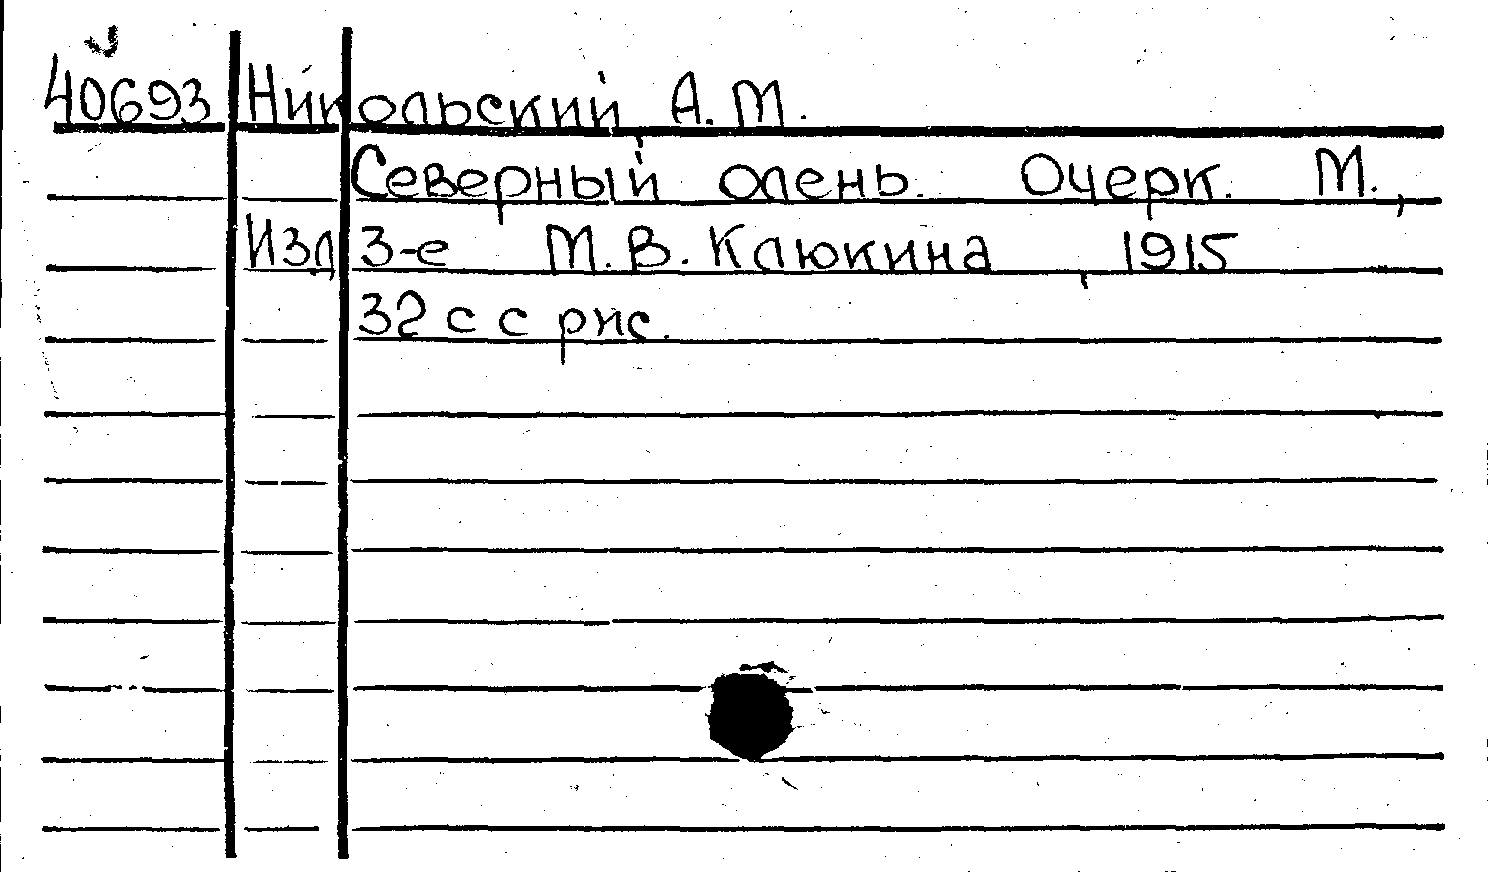 40693 Никольский, А. М.
Северный олень. Очерк. М.,
Изд 3-е М. В. Клюкина, 1915
32 с с рис.